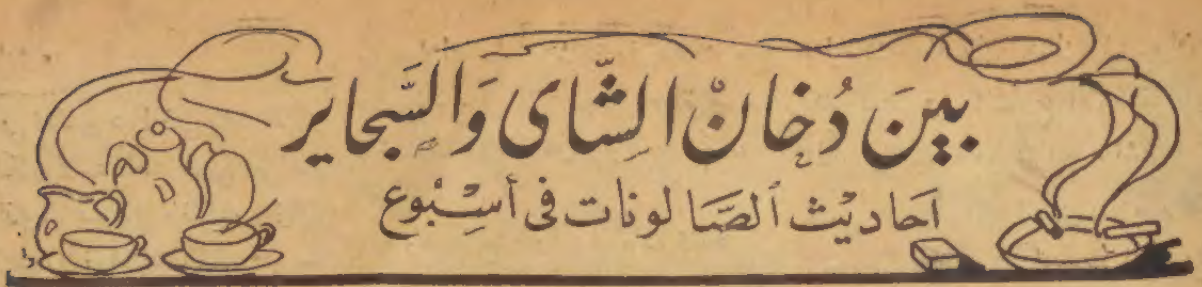 بَينَ دُخانْ الشّاى وَالسَّجاير
احَاديْث ٱلصَّالونات فى أسْبُوع